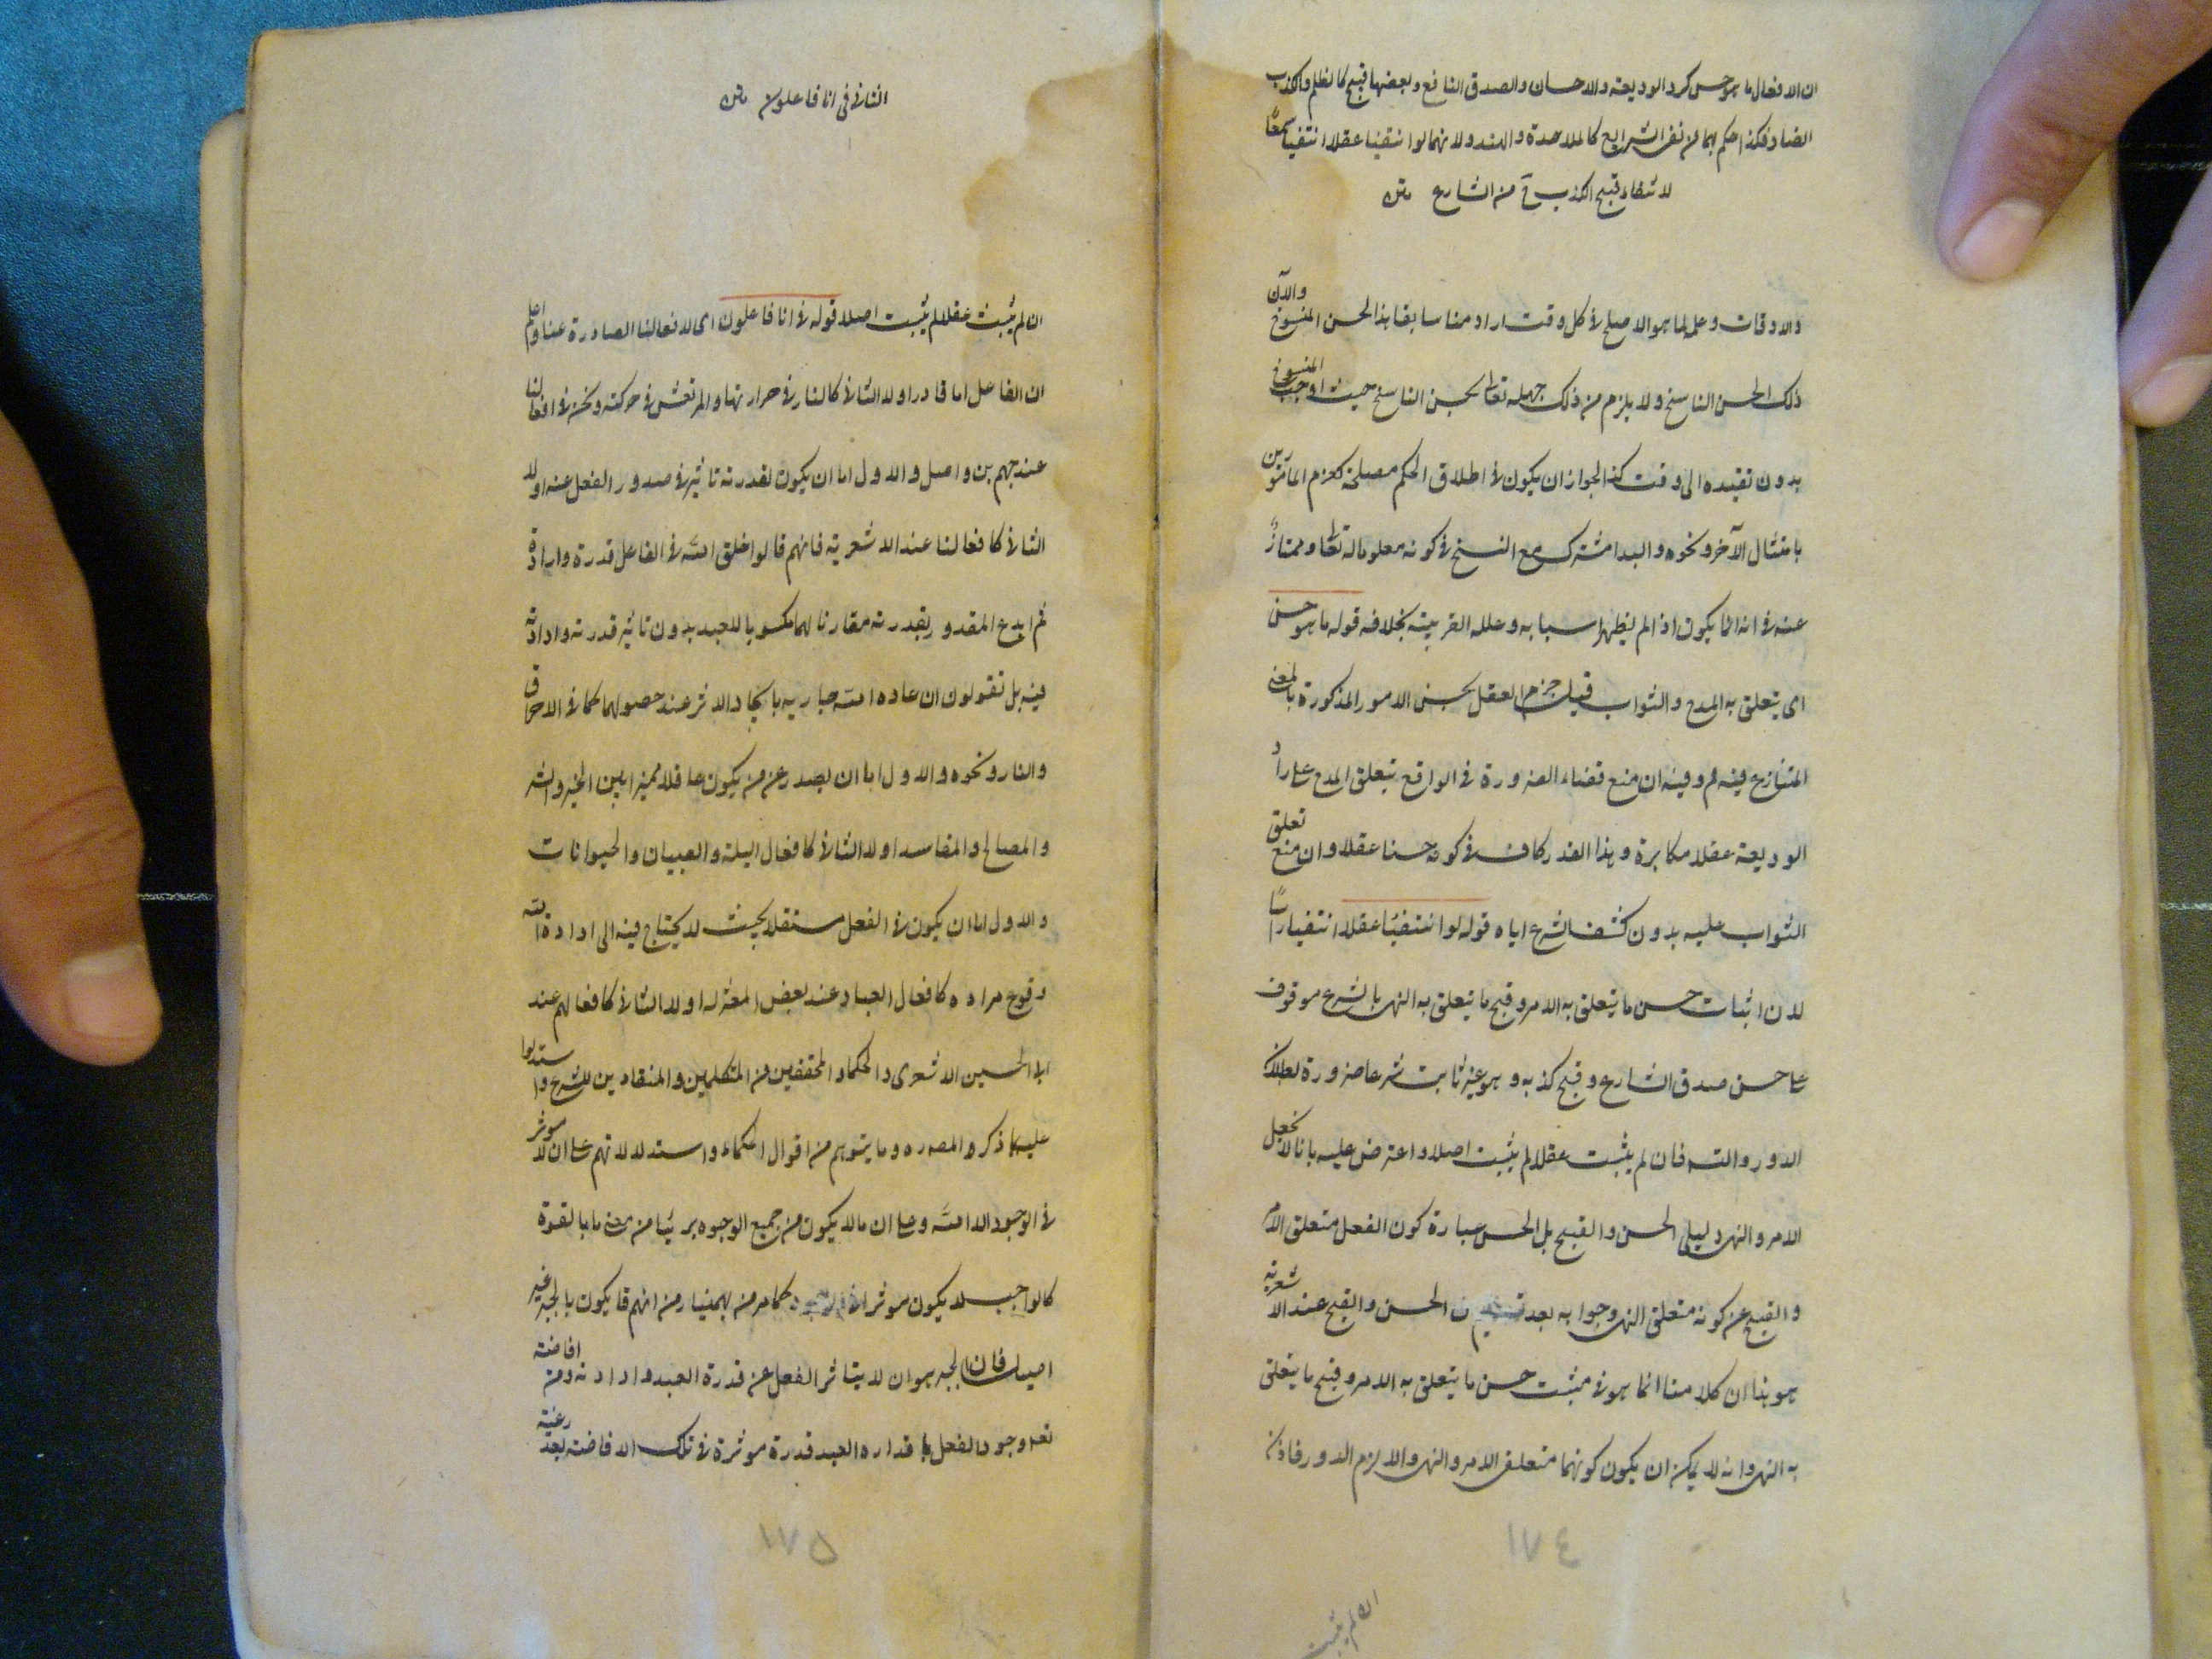 ان الافعال ما هو حسن كرد الوديعة والاحسان والصدق النافع وبعضها قبيح كالظلم والكذب
الضار فلذا حكم بهما من نفى الشرايع كالملاحدة والهند ولانهما لو انتفيا عقلا انتفيا سمعًا
لانتفاء قبح الكذب ح من الشارع متن
والاوقات وعلم لما هو الاصلح في كل وقت اراد منا سابقا هذا الحسن المنسوخ والآن
ذلك الحسن الناسخ ولا يلزم من ذلك جهله تعالى بحسن الناسخ حيث اوجب المنسوخ
بدون تقييده الى وقت كذا لجواز ان يكون في اطلاق الحكم مصلحة كعزم المأمورين
بامتثال الآخر ونحوه والبدا مشترك مع النسخ في كونه معلوما له تعالى وممتازٌ
عنه في انه انما يكون اذا لم يظهر اسبابه وعلله القريبة بخلافه قوله ما هو حسن
اى يتعلق به المدح والثواب قيل جزم العقل بحسن الامور المذكورة بالمعنى
المتنازع فيه م وفيه ان منع قضاء الضرورة في الواقع بتعلق المدح على راد
الوديعة عقلا مكابرة وهذا القدر كاف في كونه حسنا عقلا وان منع تعلق
الثواب عليه بدون كشف الشرع اياه قوله لو انتفيا عقلا انتفيا راسًا
لان اثبات حسن ما يتعلق به الامر وقبح ما يتعلق به النهى بالشرع موقوف
على حسن صدق الشارع وقبح كذبه وهو غير ثابت شرعا ضرورة لبطلان
الدور والتسه فان لم يثبت عقلا لم يثبت اصلا واعترض عليه بانا لا نجعل
الامر والنهى دليلى الحسن والقبح بل الحسن عبارة كون الفعل متعلق الامر
والقبح عن كونه متعلق النهى وجوابه بعد الحسن والقبح عند الاشعرية
هو هذا ان كلامنا انما هو في مثبت حسن ما يتعلق به الامر وقبح ما يتعلق
به النهى وانه لا يمكن ان يكون كونهما متعلق الامر والنهى والا لزم الدور فاذن
١٧٤
ان لم يثبت
الثانى في انا فاعلون متن
ان لم يثبت عقلا لم يثبت اصلا قوله في انا فاعلون اى لافعالنا الصادرة عنا واعلم
ان الفاعل اما قادر او لا الثانى كالنار في حرارتها والمرتعش في حركته ونحن في افعالنا
عند جهم بن واصل والاول اما ان يكون لقدرته تاثير في صدور الفعل عنه او لا
الثانى كافعالنا عند الاشعرية فانهم قالوا خلق الله في الفاعل قدرة وارادة
ثم ابدع المقدور بقدرته مقارنا لهما مكسوبا للعبد بدون تاثير قدرته وارادته
فيه بل تقولون ان عادة الله جارية بايجاد الاثر عند حصولهما كما في الاحراق
والنار ونحوه والاول اما ان يصدر عن من يكون عاقلا مميزا بين الخير والشر
والمصالح والمفاسد او لا الثانى كافعال البله والصبيان والحيوانات
والاول اما ان يكون في الفعل مستقلا بحيث لا يحتاج فيه الى ارادة الله
وقوع مراده كافعال العباد عند بعض المعتزلة او لا الثانى كافعالهم عند
ابى الحسين الاشعرى والحكماء والمحققين من المتكلمين والمنقادين للشرع واستدلوا
عليه بما ذكره المصره وما يتوهم من اقوال الحكماء واستدلالاتهم على ان لا موثر
في الوجود الا الله وعلى ان ما لا يكون من جميع الوجوه بريئا من معنى ما بالقوة
كالواجب لا يكون موثرا في الوجود كما مر من بهمنيار من انهم قايكون بالجبر غير
اصيل فان الجبر هو ان لا يتاثر الفعل عن قدرة العبد وارادته ومع افاضته
تعه وجود الفعل باقداره العبد قدرة موثرة في تلك الافاضة بعد رغبة
١٧٥